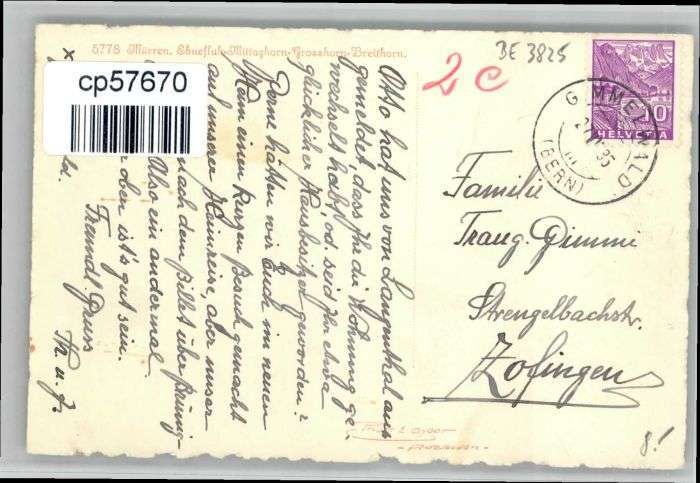 5778 Mürren. Ebnefluh-Mittaghorn-Grosshorn-Breithorn.
cp57670
BE 3825
2 c
GIMMELWALD
(BERN)
10
HELVETIA
Otto hat uns von Langenthal aus
gemeldet, dass Ihr die Wohnung ge-
wechselt habt, od. seid Ihr etwa
glücklicher Hausbesitzer geworden?
Gerne hätten wir Euch im neuen
Heim einen kurzen Besuch gemacht
auf unserer Heimreise, aber unser
nach dem Billet über Brünig
Also ein andermal.
oben ist's gut sein.
Freundl. Gruss
Th. u. J.
Familie
Traug. Dimmi
Strengelbachstr.
Zofingen
8!